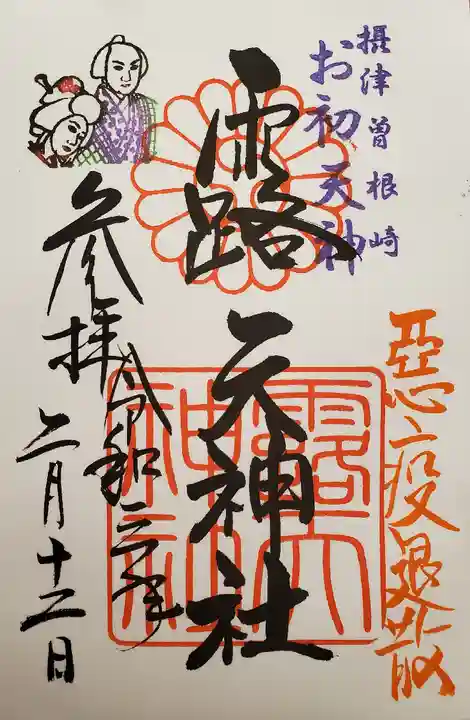 摂津曽根崎
お初天神
惡疫退散
露天神社
参拝
令和三年
二月十二日
露天神社